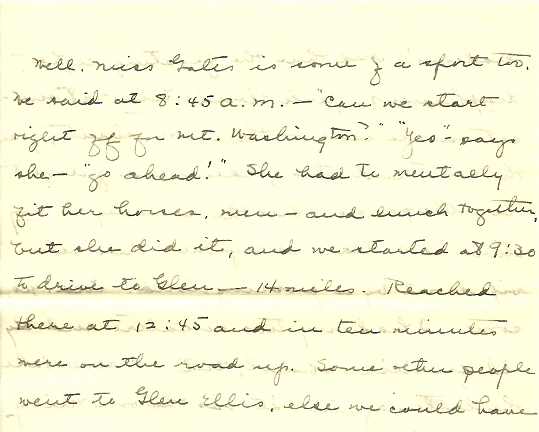 Well. Miss Gates is some of a sport too.
We said at 8:45 a.m. — "Can we start
right off for Mt. Washington?" "Yes" - says
she — "go ahead!" She had to mentally
fit her horses, men - and lunch together,
but she did it, and we started at 9:30
to drive to Glen — 14 miles. Reached
there at 12:45 and in ten minutes
were on the road up. Some other people
went to Glen Ellis, else we could have